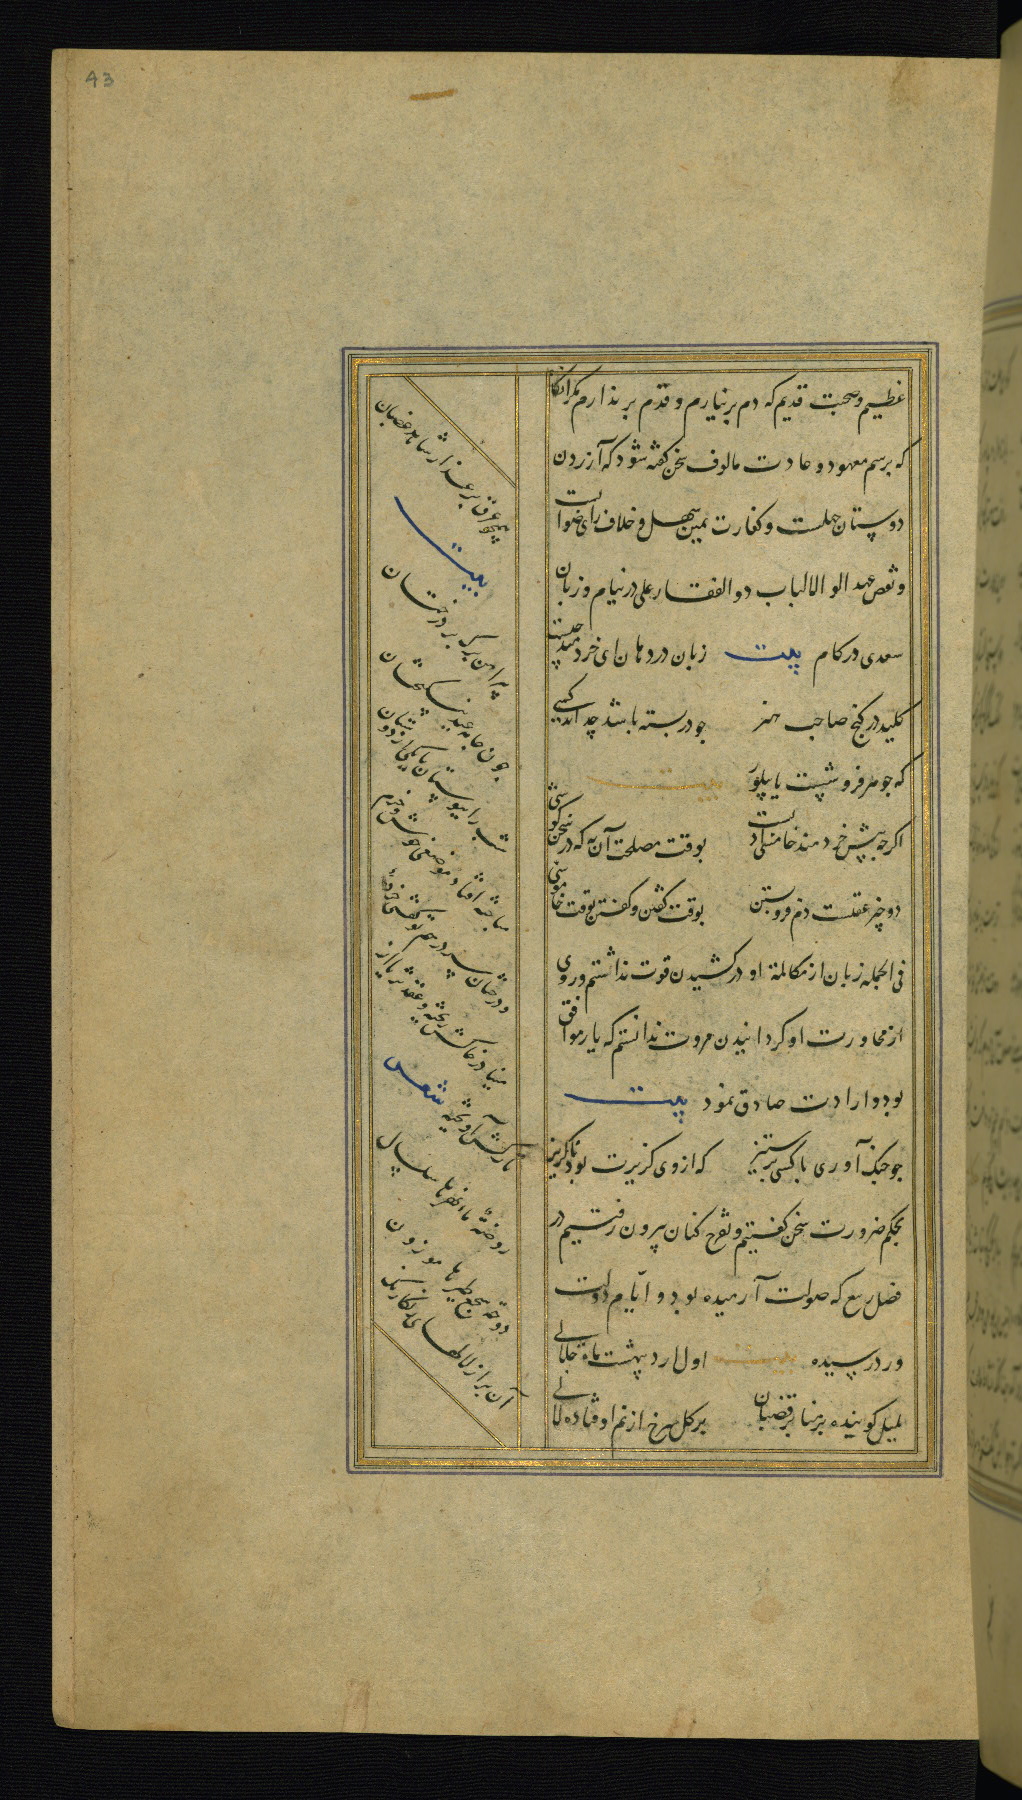 43
عظیم و صحبت قدیم که دم برنیارم و قدم برندارم مکر آنکا
که برسم معهود و عادت مالوف سخن کفته شود که آزردن
دوستان جهلست و کفارت یمین سهل و خلاف رای صوا بست
و نقص عهد الو الالباب ذوالفقار علی در نیام و زبان
سعدی در کام بیت زبان در دهان ای خردمند چیست
کلید در کنج صاحب هنر جو در بسته باشد چه داند کسی
که جوهر فروشست یا پیلور بیت
اکرچه پیش خردمند خامشی ادبست بوقت مصلحت آن به که در سخن کوشی
دو چیز عقلست دم فرو بستن بوقت کفتن و کفتن بوقت خاموشی
فی الجمله زبان از مکالمه او در کشیدن قوت نداشتم و روی
از محاورت او کردانیدن مروت ندانستم که یار موافق
بود و ارادت صادق نمود بیت
جو جنک آوری با کسی بر ستیز که از وی کزیرت بود ناکریز
بحکم ضرورت سخن کفتیم و تفرج کنان بیرون رفتیم در
فصل ربیع که صولت آرمیده بود و ایام دولت
ورد رسیده بیت اول اردیبهشت ماه جلالی
بلبل کوینده بر منابر قضبان بر کل سرخ از نم اوفتاده لالی
همچو عرق بر عذار شاهد غضبان
بیت
پیراهن برک بر درختان
چون جامه عید نیکبختان
شب را ببوستان با یکی از دوستان
مباحثه افتاد موضعی خوش و خرم
و درختان سر درهم تو کفتی خرده
مینا در خاکش ریخته و عقد ثریا از
تارکش آویخته شعر
روضة ماء نهرها سلسال
دوحة سجع طیرها موزون
آن پر از لالهای رنکارنک